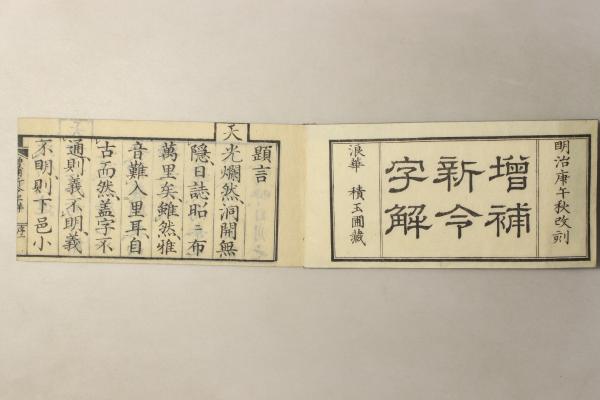 明治庚午秋改刻
增補
新令
字解
浪華 積玉圃藏
題言
天
光爛然洞開無
隱日誌昭々布
萬里矣雖然雅
音難入里耳自
古而然蓋字不
通則義不明義
不明則下邑小